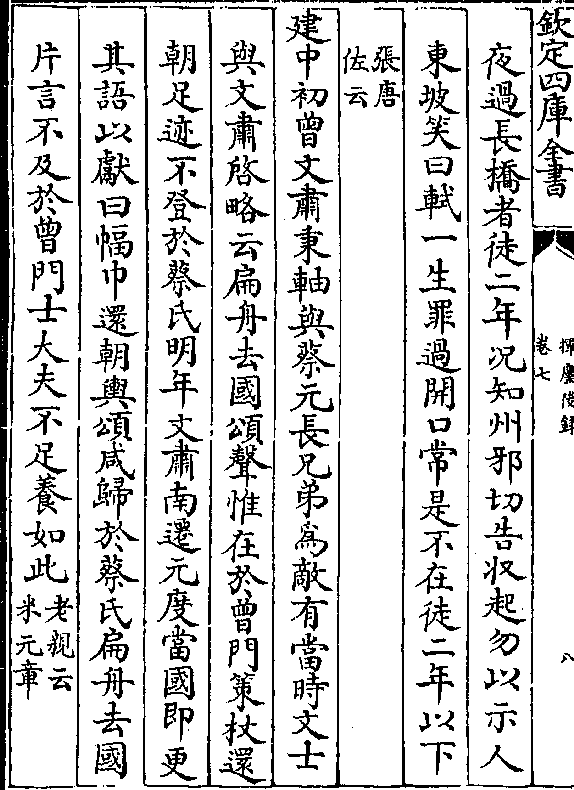 欽定四庫全書
揮麈後錄
卷七
八
夜過長橋者徒二年况知州邪切告收起勿以示人
東坡笑曰軾一生罪過開口常是不在徒二年以下
張唐
佐云
建中初曾文肅秉軸與蔡元長兄弟為敵有當時文士
與文肅啓略云扁舟去國頌聲惟在於曾門策杖還
朝足迹不登於蔡氏明年文肅南遷元度當國即更
其語以獻曰幅巾還朝輿頌咸歸於蔡氏扁舟去國
片言不及於曾門士大夫不足養如此
老親云
米元章